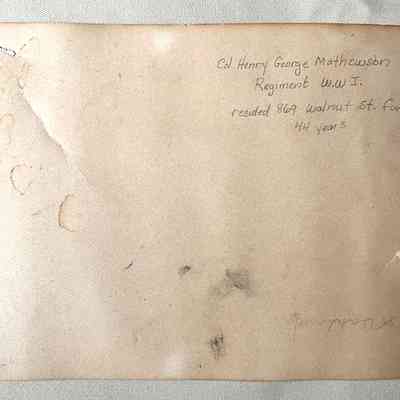 Col Henry George Mathewson
Regiment W.W I.
resided 869 Walnut St. for
44 years